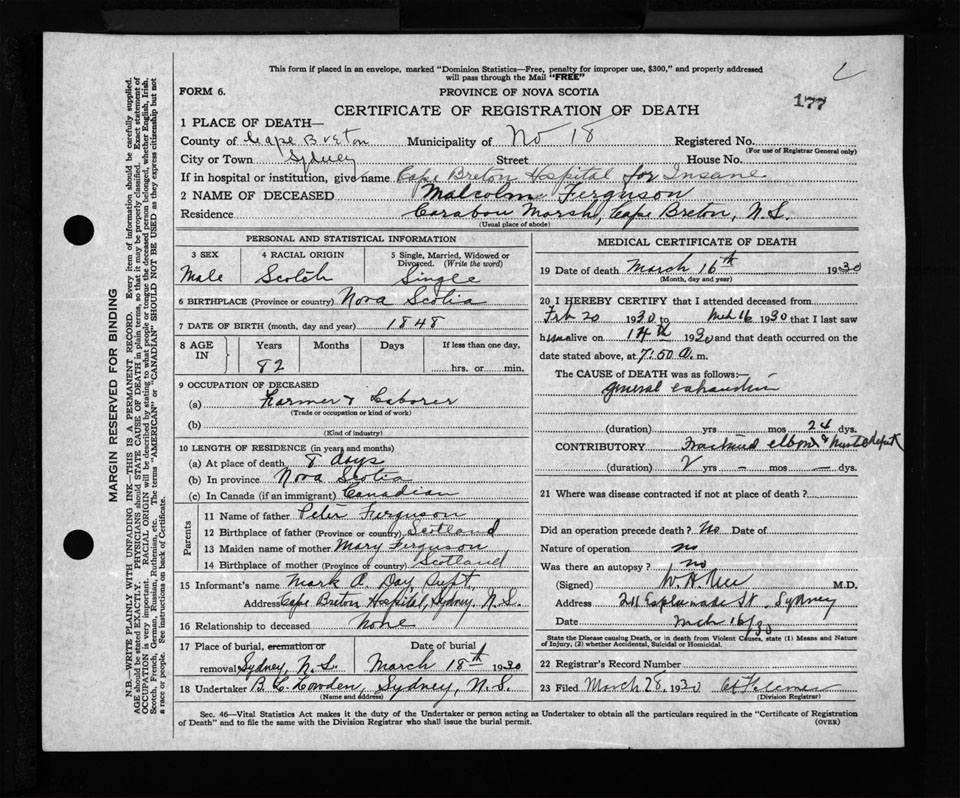 This form if placed in an envelope, marked "Dominion Statistics—Free, penalty for improper use, $300," and properly addressed
will pass through the Mail "FREE"
FORM 6.
PROVINCE OF NOVA SCOTIA
177
CERTIFICATE OF REGISTRATION OF DEATH
1 PLACE OF DEATH—
County of Cape Breton Municipality of No 18 Registered No.
(For use of Registrar General only)
City or Town Sydney Street House No.
If in hospital or institution, give name Cape Breton Hospital for Insane
2 NAME OF DECEASED Malcolm Ferguson
Residence Carabou Marsh, Cape Breton, N.S.
(Usual place of abode)
PERSONAL AND STATISTICAL INFORMATION
3 SEX 4 RACIAL ORIGIN 5 Single, Married, Widowed or
Divorced. (Write the word)
Male Scotch Single
6 BIRTHPLACE (Province or country) Nova Scotia
7 DATE OF BIRTH (month, day and year) 1848
8 AGE IN Years Months Days If less than one day,
82 hrs. or min.
9 OCCUPATION OF DECEASED
(a) Farmer & Laborer
(Trade or occupation or kind of work)
(b)
(Kind of industry)
10 LENGTH OF RESIDENCE (in years and months)
(a) At place of death 8 days
(b) In province Nova Scotia
(c) In Canada (if an immigrant) Canadian
Parents
11 Name of father Peter Ferguson
12 Birthplace of father (Province or country) Scotland
13 Maiden name of mother Mary Ferguson
14 Birthplace of mother (Province or country) Scotland
15 Informant's name Mark A. Day Supt,
Address Cape Breton Hospital, Sydney, N.S.
16 Relationship to deceased None
17 Place of burial, cremation or Date of burial
removal Sydney, N.S. March 18th 1930
18 Undertaker B.C. Lowden, Sydney, N.S.
(Name and address)
MEDICAL CERTIFICATE OF DEATH
19 Date of death March 16th 1930
(Month, day and year)
20 I HEREBY CERTIFY that I attended deceased from
Feb 20 1930 to Mch 16 1930 that I last saw
him alive on 14th 1930 and that death occurred on the
date stated above, at 7:50 a. m.
The CAUSE OF DEATH was as follows:—
general exhaustion
(duration) yrs mos 24 dys.
CONTRIBUTORY Fractured elbow &
(duration) yrs – mos – dys.
21 Where was disease contracted if not at place of death?
Did an operation precede death? No Date of
Nature of operation no
Was there an autopsy? no
(Signed) W H M.D.
Address 211 Esplanade St, Sydney
Date Mch 16/30
State the Disease causing Death, or in death from Violent Causes, state (1) Means and Nature
of Injury, (2) whether Accidental, Suicidal or Homicidal.
22 Registrar's Record Number
23 Filed March 28, 1930
(Division Registrar)
Sec. 46—Vital Statistics Act makes it the duty of the Undertaker or person acting as Undertaker to obtain all the particulars required in the "Certificate of Registration
of Death" and to file the same with the Division Registrar who shall issue the burial permit.
(OVER)
MARGIN RESERVED FOR BINDING
N.B.—WRITE PLAINLY WITH UNFADING INK—THIS IS A PERMANENT RECORD. Every item of information should be carefully supplied.
AGE should be stated EXACTLY. PHYSICIANS should STATE CAUSE OF DEATH in plain terms, so that it may be properly classified. Exact statement of
OCCUPATION is very important. RACIAL ORIGIN will be described by stating to what people or tongue the deceased person belonged, whether English, Irish,
Scotch, French, German, Russian, Ruthenian, etc. The terms "AMERICAN" or "CANADIAN" SHOULD NOT BE USED as they express citizenship but not
a race or people. See instructions on back of Certificate.